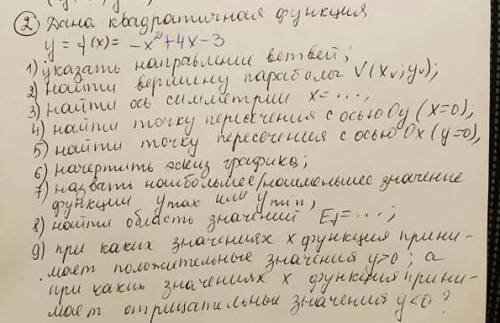 ② Дана квадратичная функция
y = f(x) = -x²+4x-3
1) указать направлние ветвей;
2) найти вершину параболы V(xᵥ; yᵥ);
3) найти ось симметрии x=...;
4) найти точку пересечения с осью Oy (x=0);
5) найти точку пересечения с осью Ox (y=0),
6) начертить эскиз графика;
7) назвать наибольшее/наименьшее значение
функции ymax или ymin,
8) найти область значений Ef=...;
9) при каких значениях x функция прини-
мает положительные значения y>0; а
при каких значениях x функция прини-
мает отрицательные значения y<0?